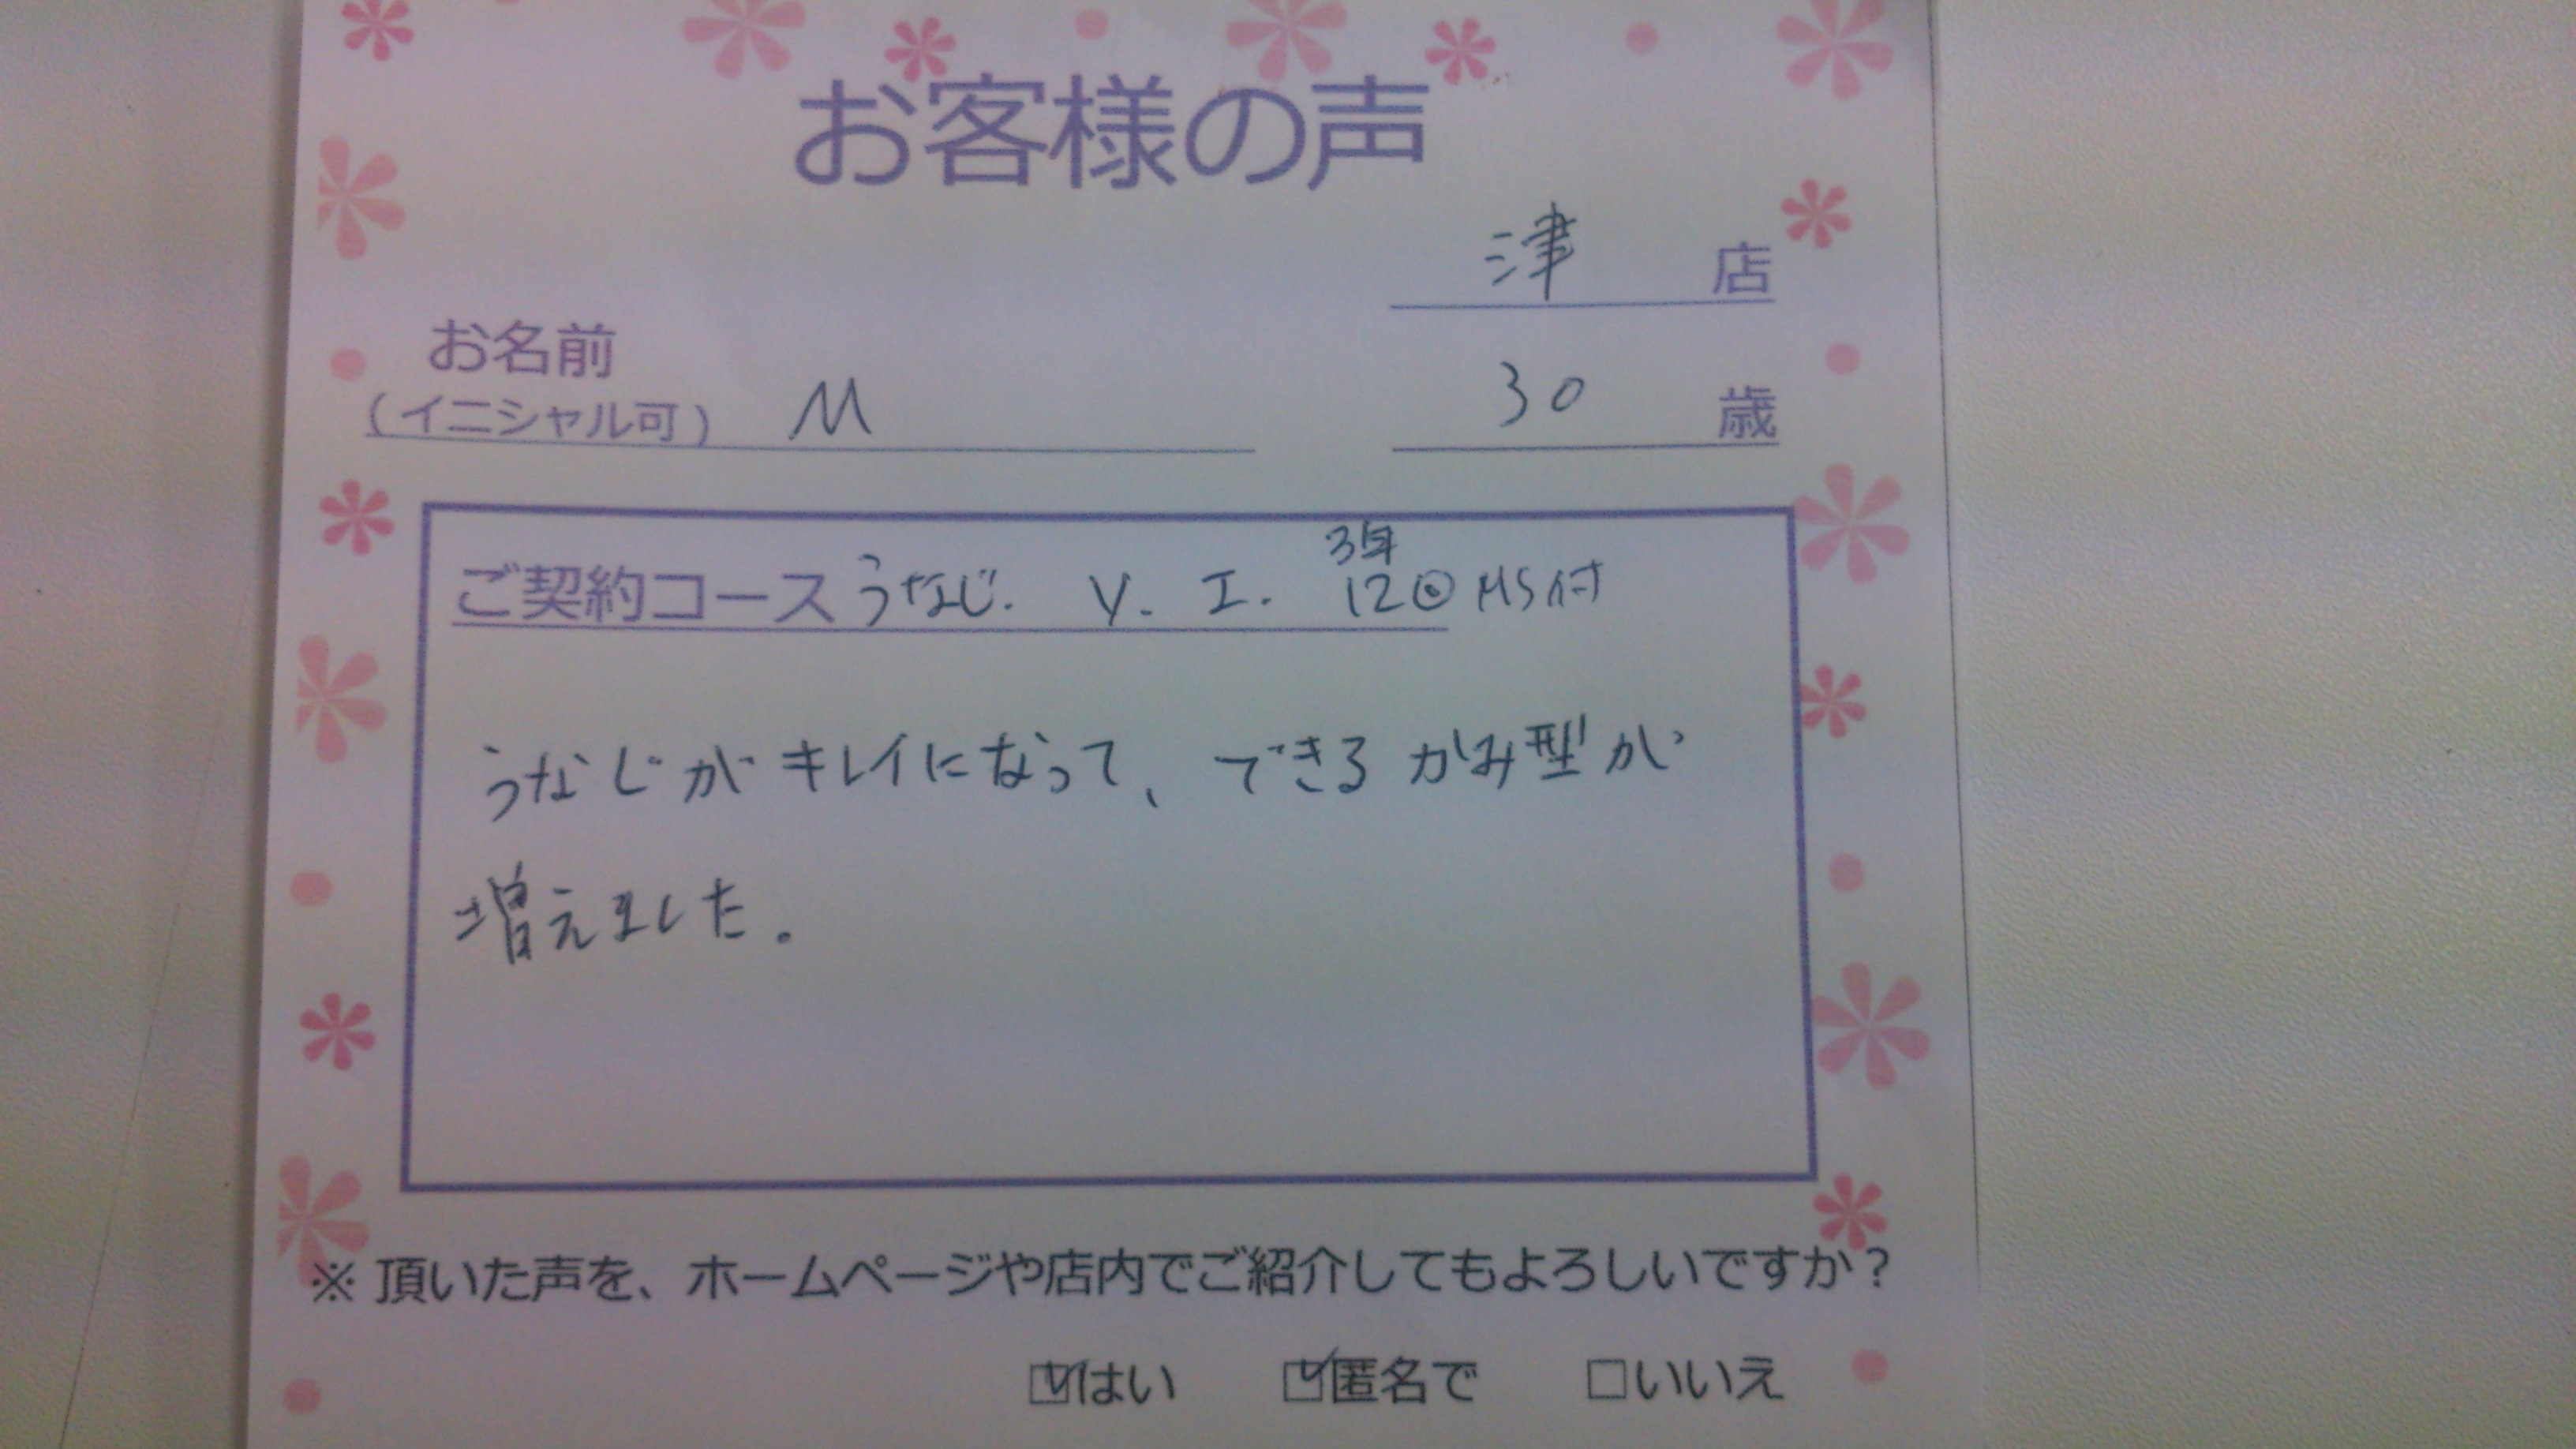 お客様の声
津 店
お名前
(イニシャル可) M 30 歳
3年
ご契約コース うなじ. V. I. 12回 MS付
うなじがキレイになって、できるかみ型が
増えました。
※頂いた声を、ホームページや店内でご紹介してもよろしいですか?
☑はい ☑匿名で □いいえ